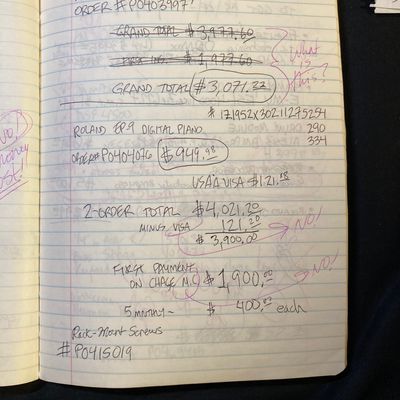 ORDER #P0403997!
GRAND TOTAL $3,977.60
$1,977.60
What is this?
GRAND TOTAL $3,071.22
# 171952X30211275254
290
334
ROLAND EP.9 DIGITAL PIANO
OFFER# P0404076 $949.98
USAA VISA $121.18
2-ORDER TOTAL $4,021.20
MINUS VISA 121.20
$3,900.00
NO!
FIRST PAYMENT
ON CHASE M.C. $1,900.00
NO!
5 monthly~ $400.00 each
Rack-Mount Screws
#P0415019
NO
money